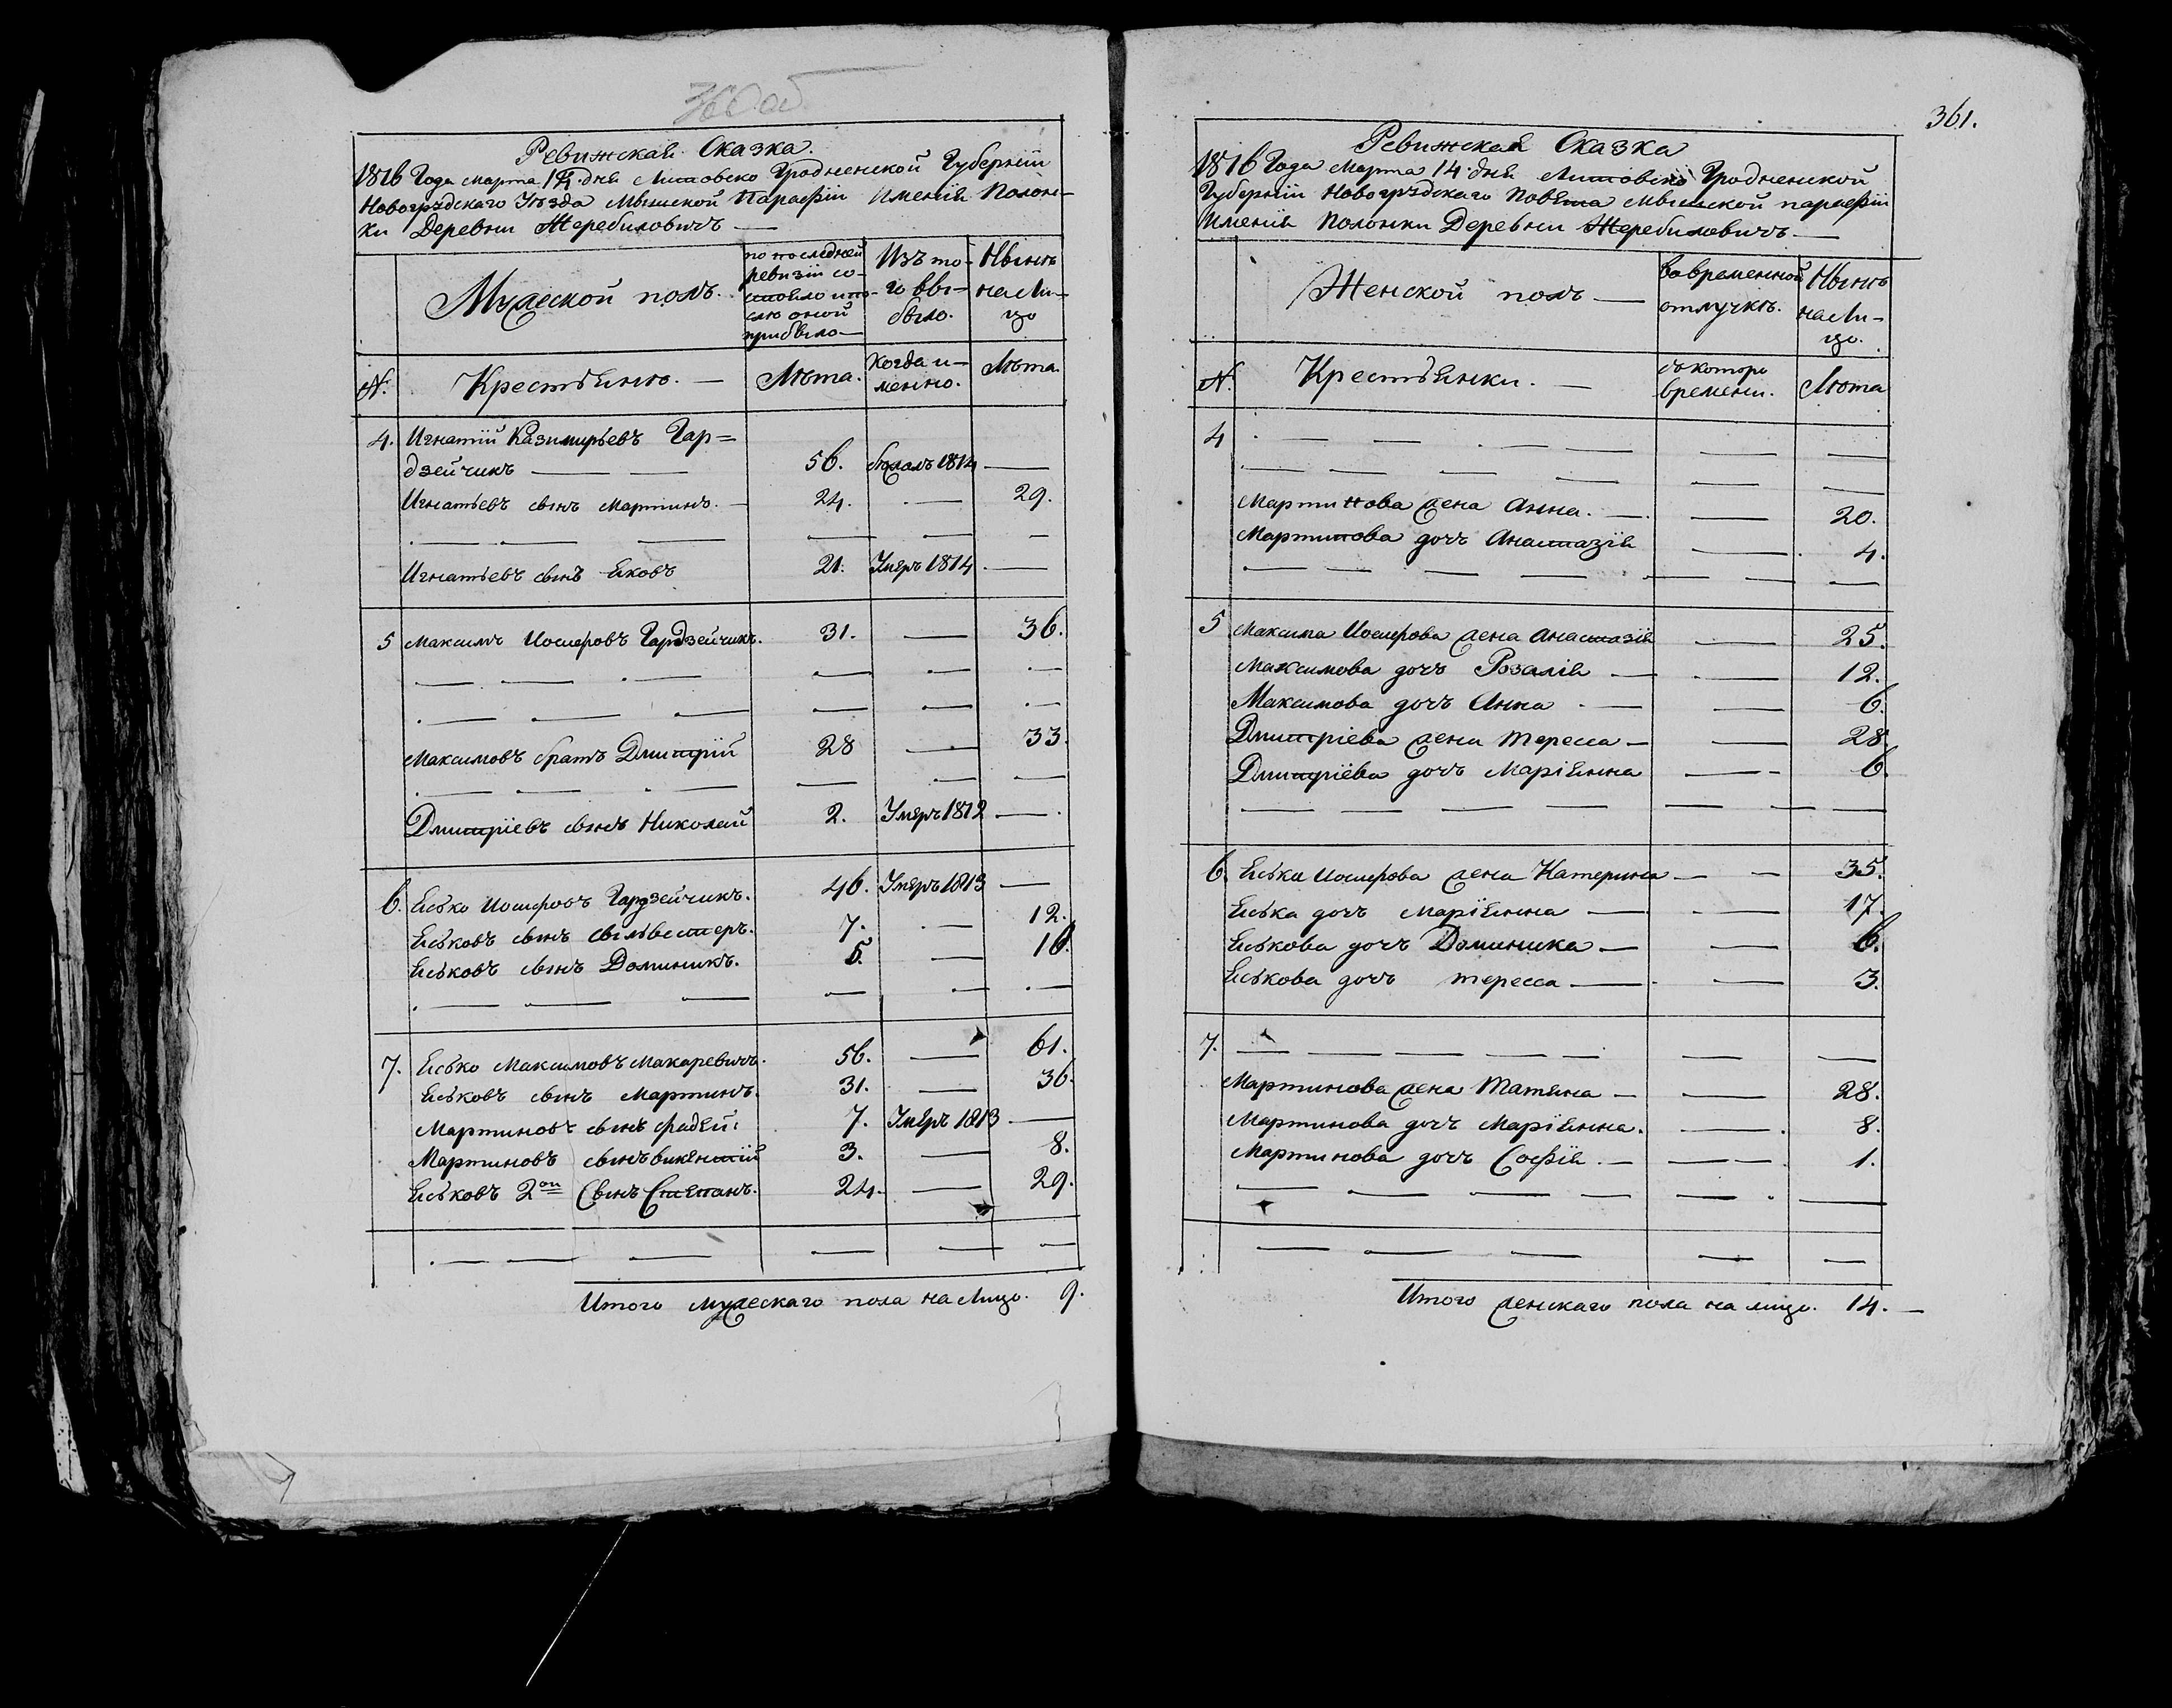 360об
Ревижская Сказка.
1816 Года марта 14 дня Литовско Гродненской Губернїи
Новогрудскаго Уѣзда Мышской Парафїи Именїя Полон-
ки Деревни Жеребиловичъ —
Мужеской полъ.
по последней
ревизїи со-
стояло и по-
слѣ оной
прибыло —
Изъ то-
го вы-
было.
Нынѣ
на Ли-
цо
№.
Крестьяне. —
Лѣта.
Когда и-
менно.
Лѣта.
4. Игнатїй Казимирьевъ Гар=
дзейчикъ — — 56. бѣжалъ 1814 —
Игнатьевъ сынъ Мартинъ. — 24. — 29.
— — — — — —
Игнатьевъ сынъ Яковъ 21. Умеръ 1814. —
5 Максимъ Иосифовъ Гардзейчикъ. 31. — 36.
— — — — — —
— — — — — —
Максимовъ братъ Дмитрїй 28 — 33.
— — — — — —
Дмитрїевъ сынъ Николай 2. Умеръ 1812 —
6. Еське Иосифовъ Гардзейчикъ. 46. Умеръ 1813 —
Еськовъ сынъ Сильвестеръ. 7. — 12.
Еськовъ сынъ Доминикъ. 5. — 10.
— — — — — —
7. Есько Максимовъ Макаревичъ. 56. — 61.
Еськовъ сынъ Мартинъ. 31. — 36.
Мартиновъ сынъ Фадей: 7. Умеръ 1813 —
Мартиновъ сынъ Викентїй 3. — 8.
Еськовъ 2ой Сынъ Степанъ. 24. — 29.
— — — — — —
Итого мужескаго пола на Лицо. 9.
361.
Ревижская Сказка
1816 Года марта 14 дня Литовско Гродненской
Губернїи Новогрудскаго Повѣта Мышской парафїи
Именїя Полонки Деревни Жеребиловичъ —
Женской полъ —
во временной
отлучкѣ.
Нынѣ
на Ли-
цо.
№.
Крестьянки. —
съ которо
времени.
Лѣта
4 — — — — — —
— — — — — —
Мартинова жена Анна. — — 20.
Мартинова дочь Анастазїя — 4.
— — — — — — —
5 Максима Иосифова жена Анастазїя — 25.
Максимова дочь Розалїя — — 12.
Максимова дочь Анна — — 6.
Дмитрїева жена Тересса — — 28.
Дмитрїева дочь Марїянна — 6.
— — — — — — —
6. Еська Иосифова жена Катерина — — 35.
Еська дочь Марїянна — — 17.
Еськова дочь Доминика — — 6.
Еськова дочь Тересса — — 3.
7. — — — — — — —
Мартинова жена Татяна — — 28.
Мартинова дочь Марїянна. — 8.
Мартинова дочь Софїя. — — 1.
— — — — — —
— — — — —
Итого женскаго пола на лицо. 14. —